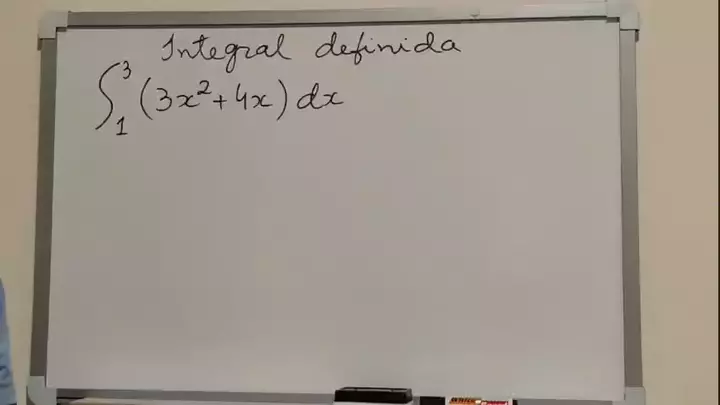 Integral definida
∫₁³ (3x² + 4x) dx